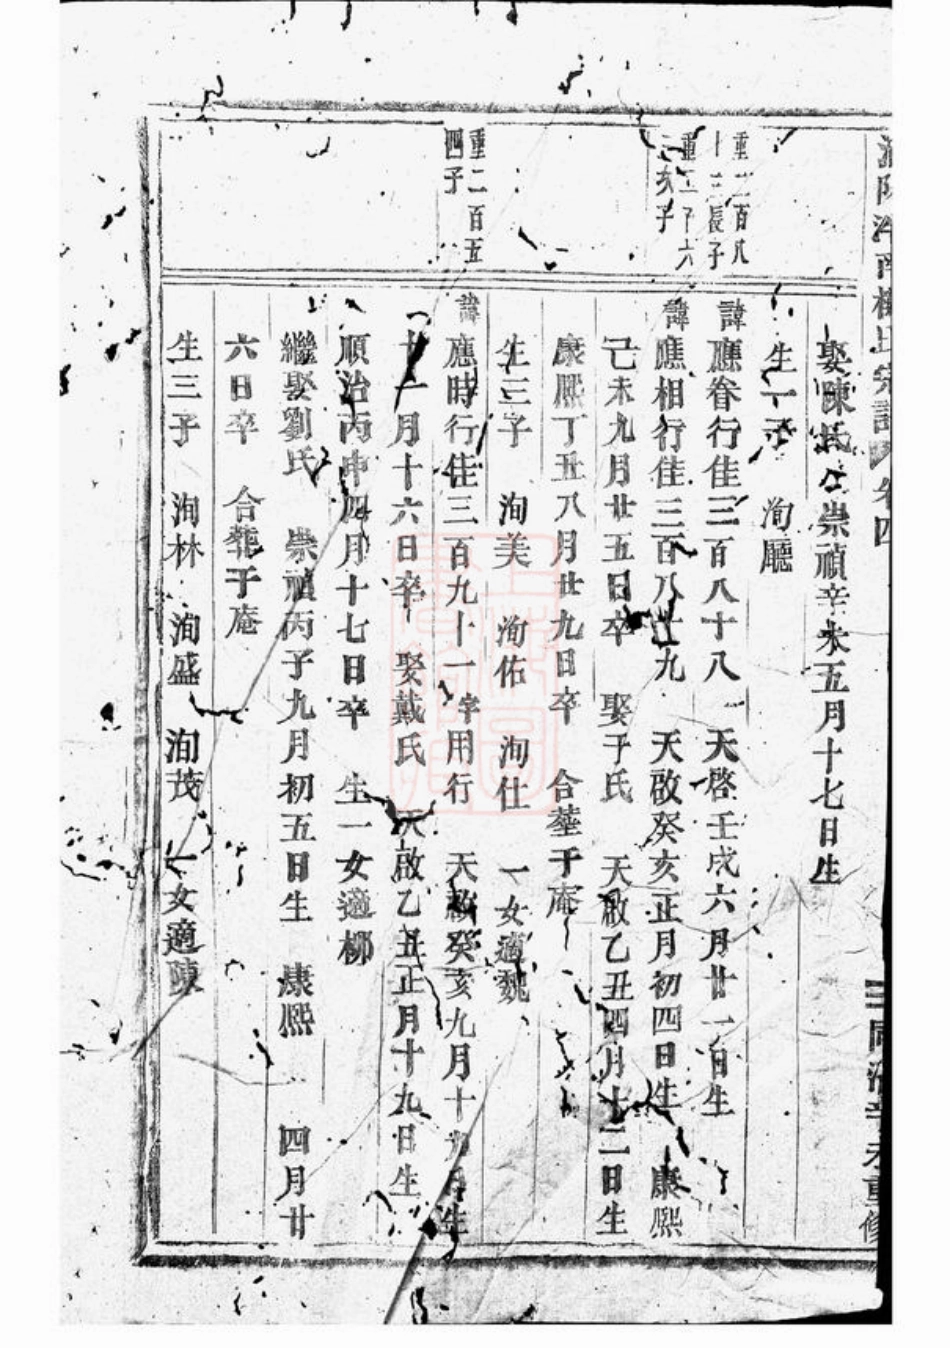 氏宗譜 卷四
同治辛未重修
娶陳氏 崇禎辛未五月十七日生
生一子 洵廳
重二百八
十三長子
諱應眷行佳三百八十八 天啓壬戌六月廿一日生
重二百六
諱應相行佳三百八十九 天啟癸亥正月初四日生 康熙
己未九月廿五日卒 娶于氏 天啟乙丑四月十二日生
康熙丁丑八月廿九日卒 合葬于庵
生三子 洵美 洵佑 洵仕 一女適魏
重二百五
四子
諱應時行佳三百九十一字用行 天啟癸亥九月十九日生
十一月十六日卒 娶戴氏 天啟乙丑正月十九日生
順治丙申四月十七日卒 生一女適柳
繼娶劉氏 崇禎丙子九月初五日生 康熙 四月廿
六日卒 合葬于庵
生三子 洵林 洵盛 洵茂 一女適陳